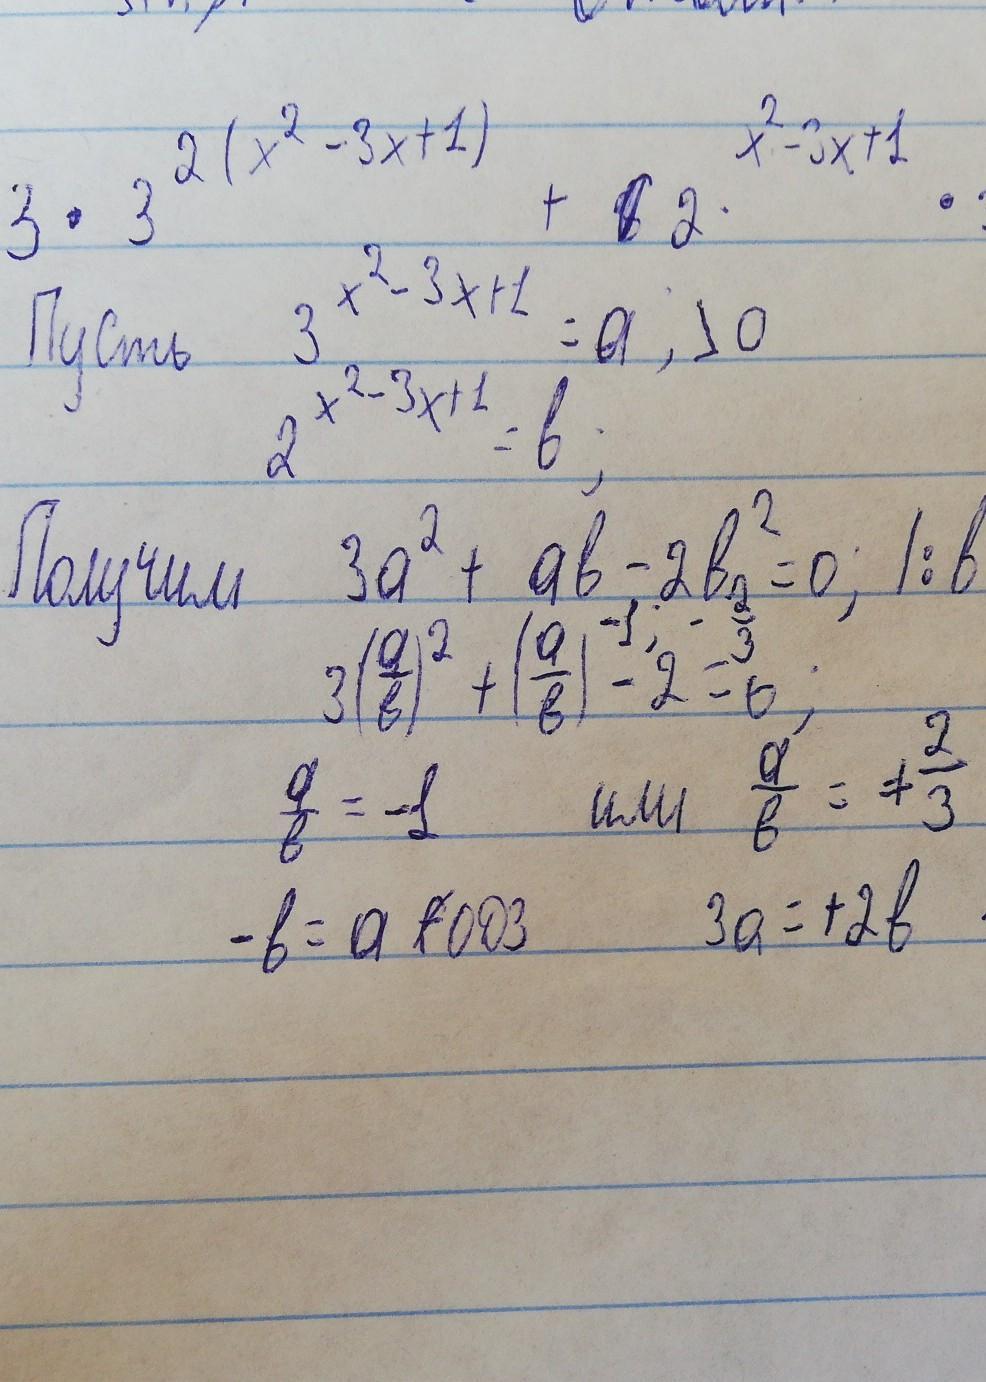 3 · 3^{2(x^2-3x+1)} + 2^{x^2-3x+1} ·
Пусть 3^{x^2-3x+1} = a, > 0
2^{x^2-3x+1} = b;
Получим 3a^2 + ab - 2b^2 = 0; |: b
-1; -\frac{2}{3}
3(\frac{a}{b})^2 + (\frac{a}{b}) - 2 = 0;
\frac{a}{b} = -1 или \frac{a}{b} = +\frac{2}{3}
-b = a ∉ ОДЗ 3a = +2b